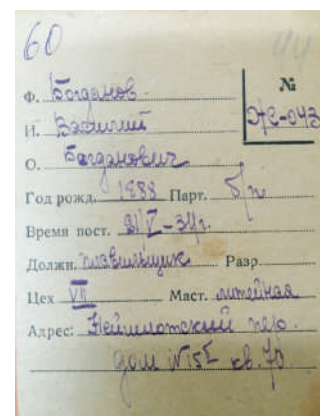 60 44
Ф. Богданов
№
И. Василий
ЭС-043
О. Богданович
Год рожд. 1888 Парт. б/п
Время пост. 21/V-34г.
Должн. плавильщик Разр.
Цех VII Маст. литейная
Адрес: Нейшлотский пер.
дом №15Е кв. 70